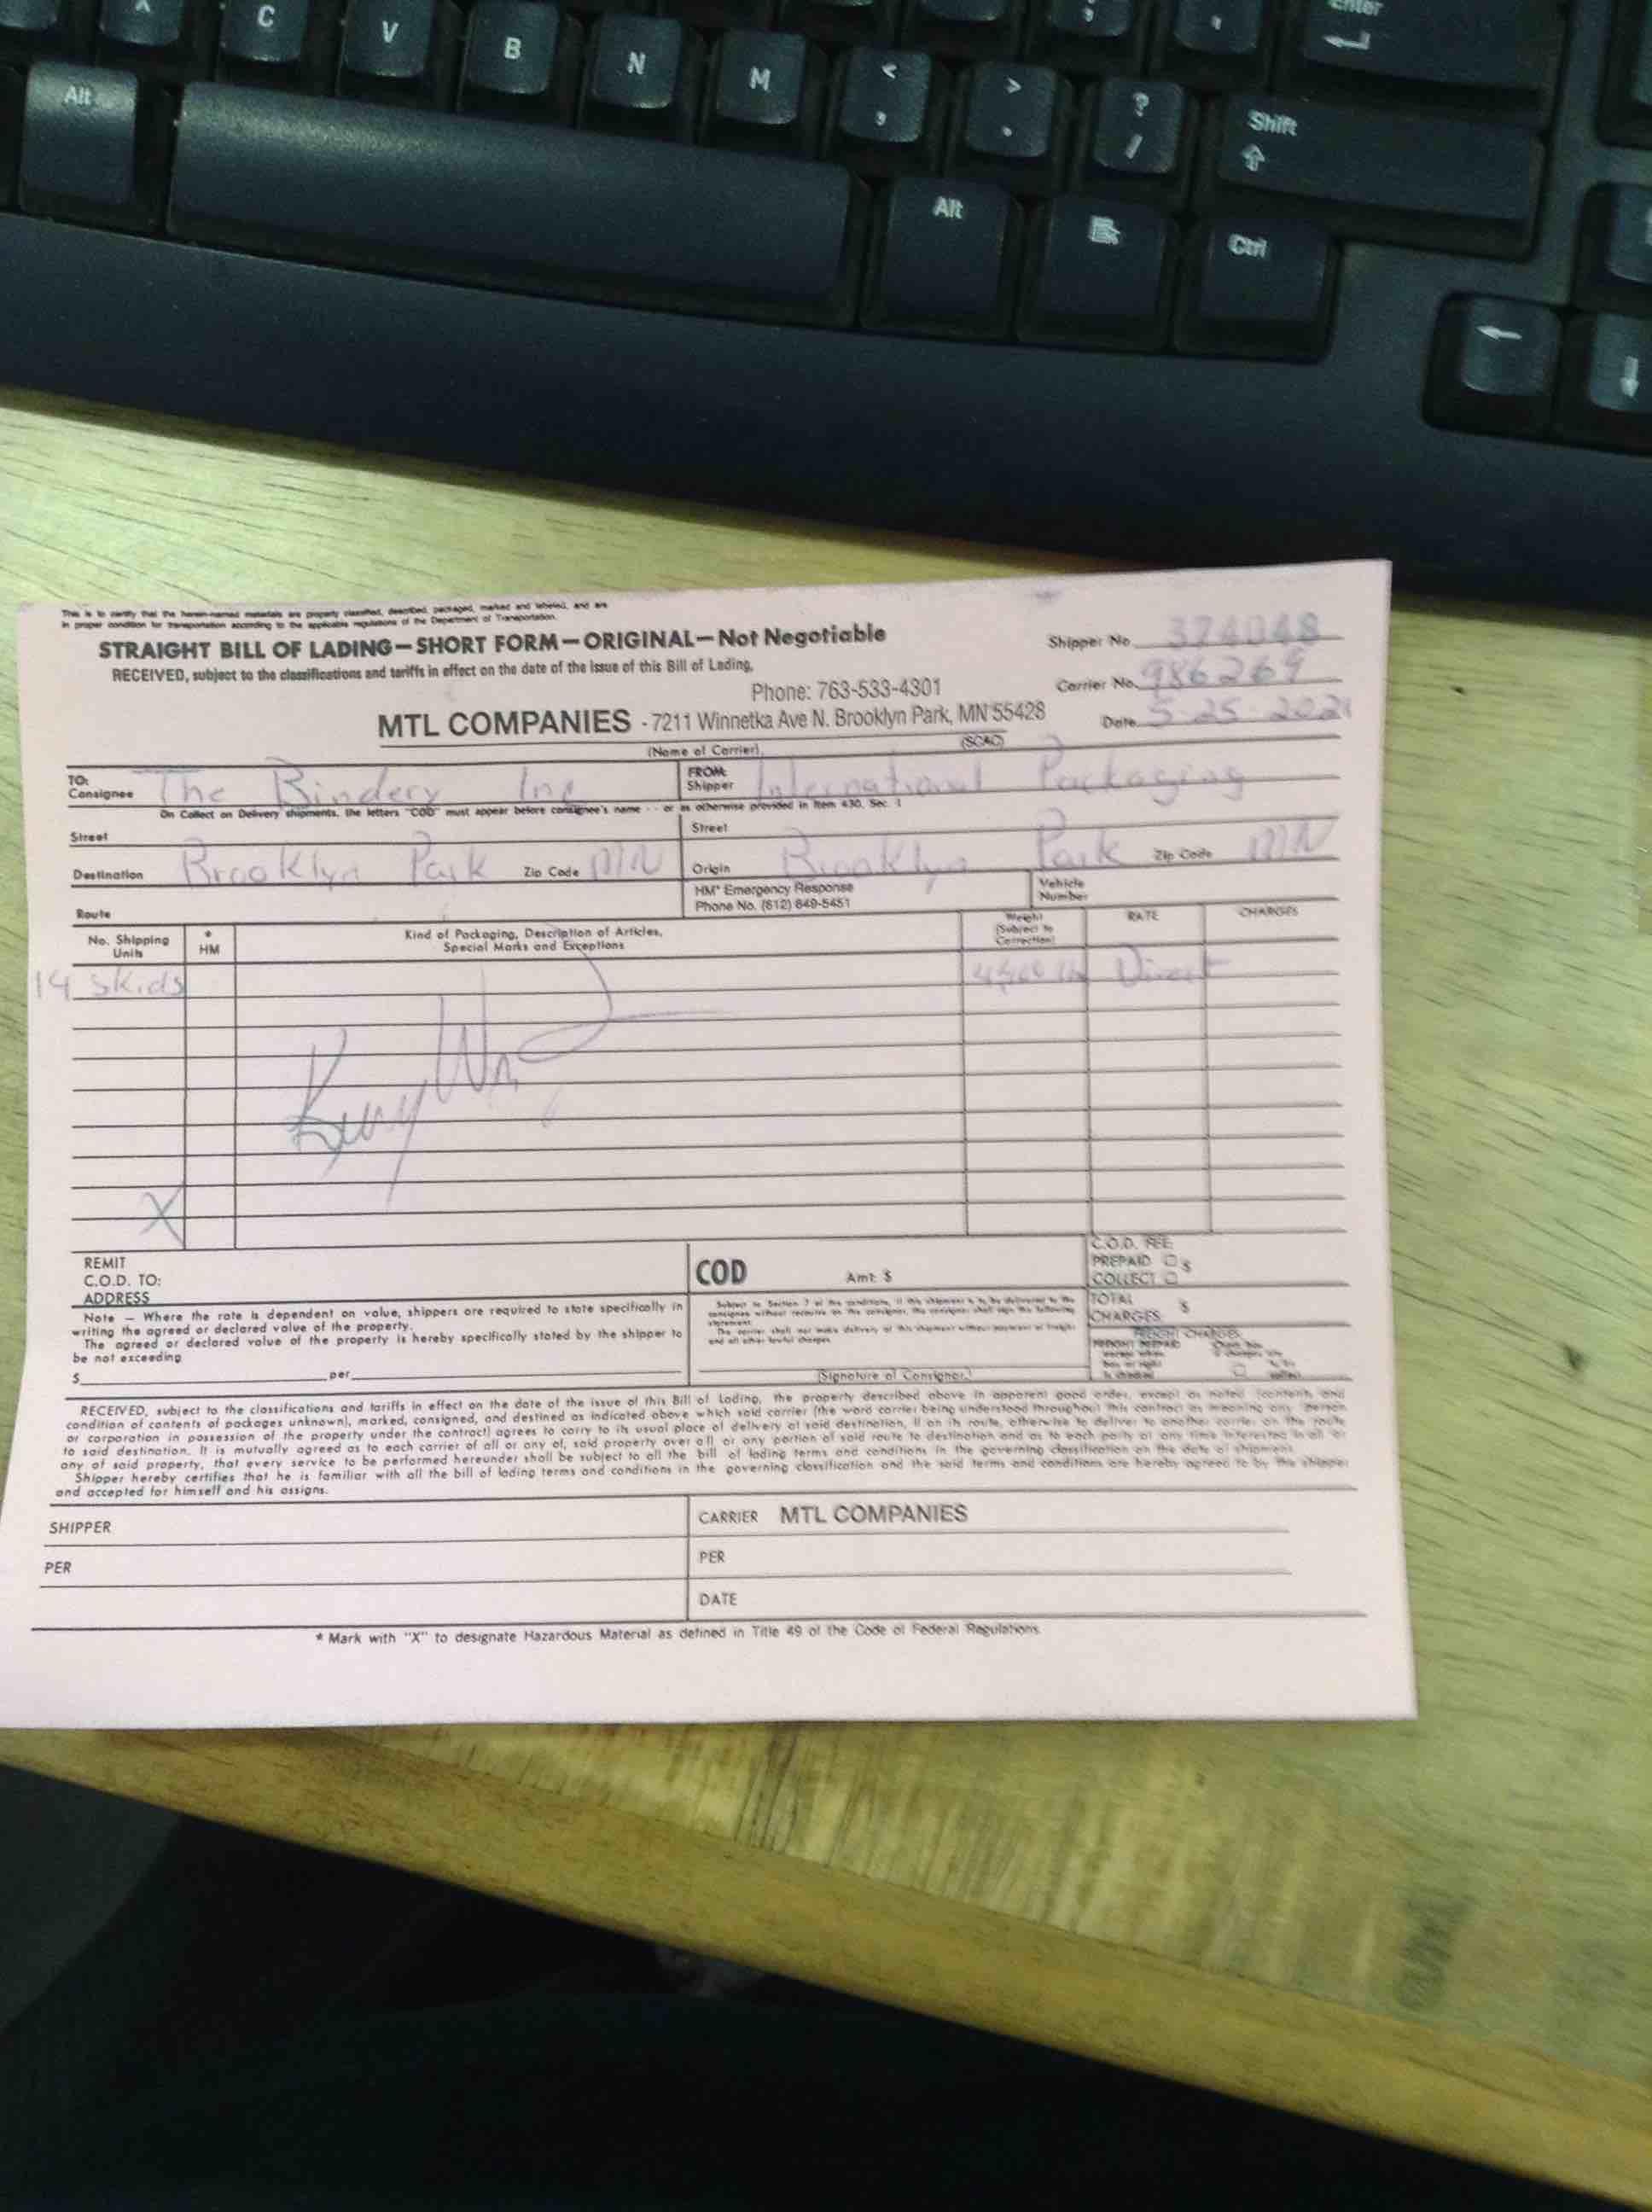 X C V B N M < , > . ? / Enter
Alt Shift
Alt Ctrl
This is to certify that the herein-named materials are properly classified, described, packaged, marked and labeled, and are
in proper condition for transportation according to the applicable regulations of the Department of Transportation.
STRAIGHT BILL OF LADING—SHORT FORM—ORIGINAL—Not Negotiable
Shipper No. 374048
RECEIVED, subject to the classifications and tariffs in effect on the date of the issue of this Bill of Lading,
Carrier No. 986269
Phone: 763-533-4301
MTL COMPANIES - 7211 Winnetka Ave N. Brooklyn Park, MN 55428
Date 5-25-2021
(Name of Carrier) (SCAC)
TO: Consignee The Bindery Inc
FROM: Shipper International Packaging
On Collect on Delivery shipments, the letters "COD" must appear before consignee's name - - or as otherwise provided in Item 430, Sec. 1
Street Street
Destination Brooklyn Park Zip Code MN Origin Brooklyn Park Zip Code MN
HM* Emergency Response
Phone No. (612) 849-5451
Vehicle
Number
Route
No. Shipping
Units
*
HM
Kind of Packaging, Description of Articles,
Special Marks and Exceptions
Weight
(Subject to
Correction)
RATE CHARGES
14 Skids Direct
X
REMIT
C.O.D. TO:
ADDRESS
COD Amt: $
C.O.D. FEE:
PREPAID □ $
COLLECT □
Note — Where the rate is dependent on value, shippers are required to state specifically in
writing the agreed or declared value of the property.
The agreed or declared value of the property is hereby specifically stated by the shipper to
be not exceeding
$ per
Subject to Section 7 of the conditions, if this shipment is to be delivered to the
consignee without recourse on the consignor, the consignor shall sign the following
statement:
The carrier shall not make delivery of this shipment without payment of freight
and all other lawful charges.
(Signature of Consignor.)
TOTAL
CHARGES: $
FREIGHT CHARGES
FREIGHT PREPAID
RECEIVED, subject to the classifications and tariffs in effect on the date of the issue of this Bill of Lading, the property described above in apparent good order, except as noted (contents and
condition of contents of packages unknown), marked, consigned, and destined as indicated above which said carrier (the word carrier being understood throughout this contract as meaning any person
or corporation in possession of the property under the contract) agrees to carry to its usual place of delivery at said destination, if on its route, otherwise to deliver to another carrier on the route
to said destination. It is mutually agreed as to each carrier of all or any of, said property over all or any portion of said route to destination and as to each party at any time interested in all or
any of said property, that every service to be performed hereunder shall be subject to all the bill of lading terms and conditions in the governing classification on the date of shipment.
Shipper hereby certifies that he is familiar with all the bill of lading terms and conditions in the governing classification and the said terms and conditions are hereby agreed to by the shipper
and accepted for himself and his assigns.
SHIPPER CARRIER MTL COMPANIES
PER PER
DATE
* Mark with "X" to designate Hazardous Material as defined in Title 49 of the Code of Federal Regulations